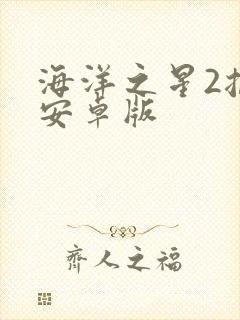 海洋之星2
安卓版
齐人之福